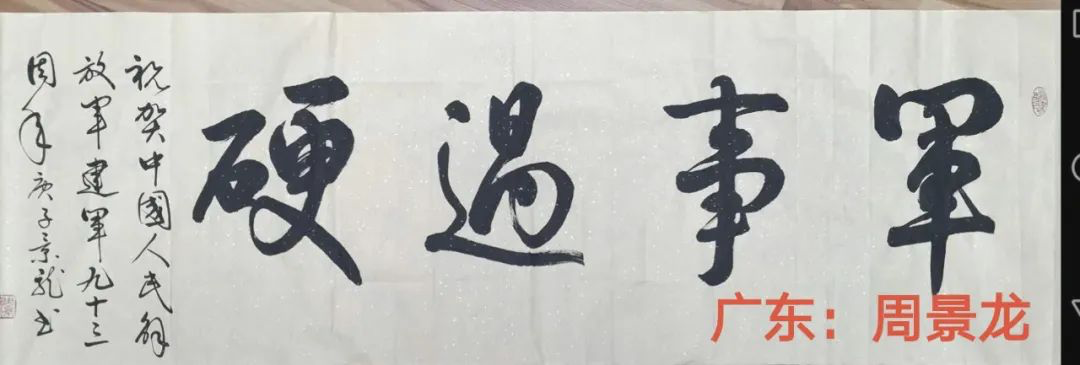 軍事過硬
祝贺中國人民解
放军建軍九十三
周年庚子景龍书
广东：周景龙